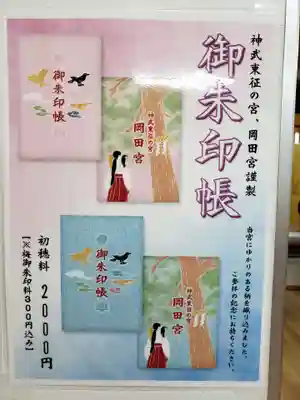 神武東征の宮、岡田宮謹製
御朱印帳
当宮にゆかりのある柄を織り込みました。
ご参拝の記念にお持ちください。
御朱印帳
神武東征の宮
岡田宮
御朱印帳
神武東征の宮
岡田宮
初穂料 2000円
【※梅御朱印料300円込み】